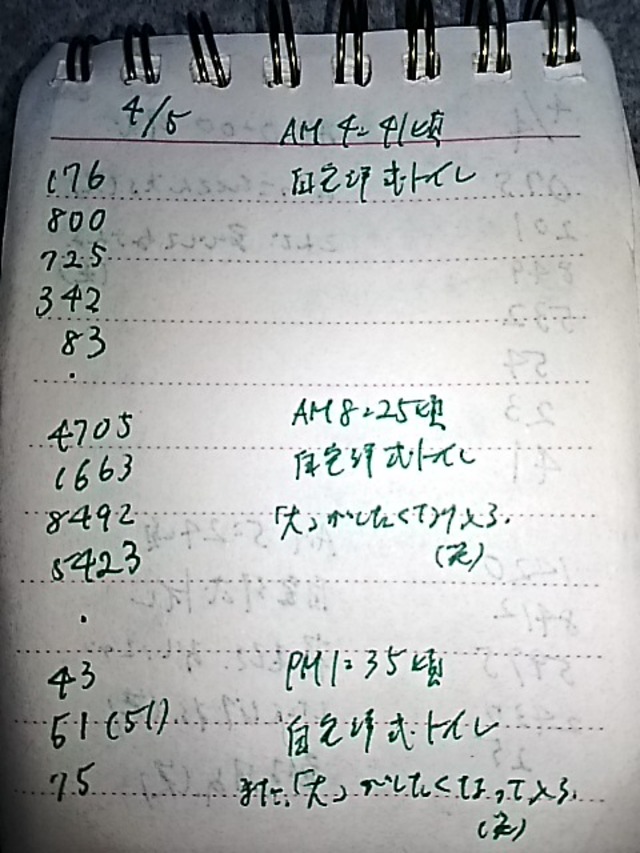 4/5 AM 4:41頃
176 自宅洋式トイレ
800
725
342
83
.
4705 AM 8:25頃
1663 自宅洋式トイレ
8492 「大」がしたくてたまる.
5423 (笑)
.
43 PM 1:35頃
51 (51) 自宅洋式トイレ
75 また、「大」がしたくなって
(笑)